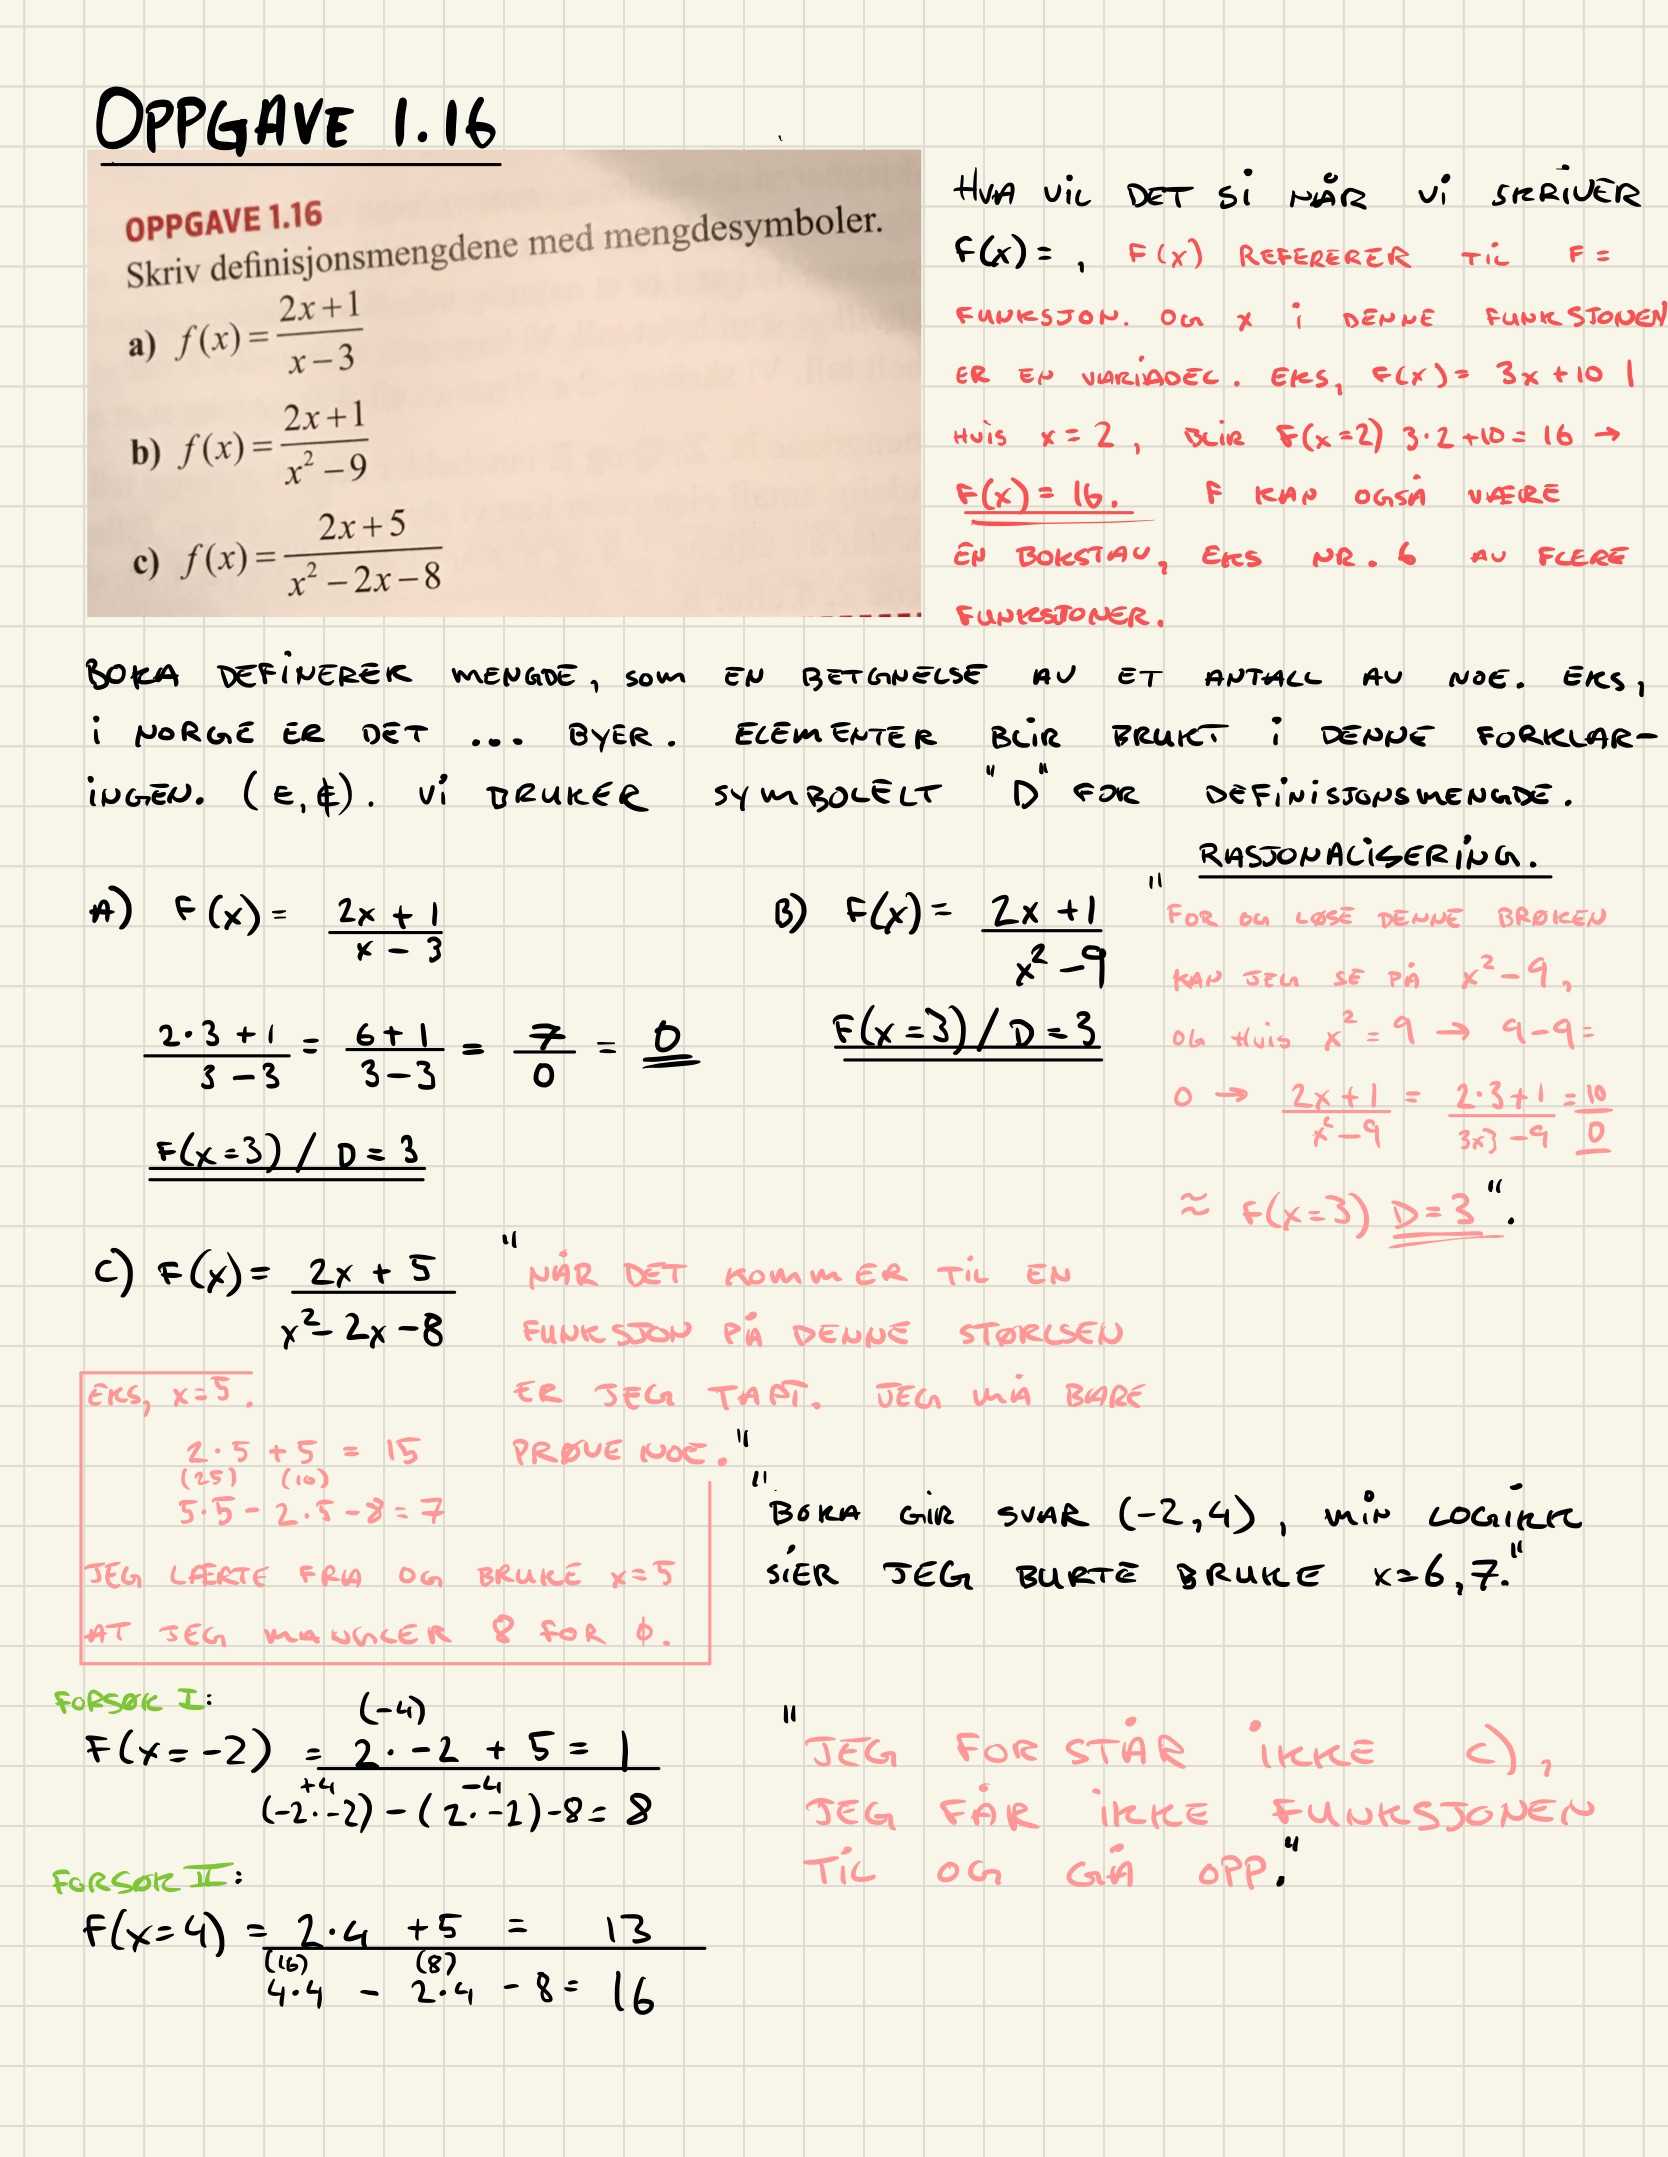 OPPGAVE 1.16
OPPGAVE 1.16
Skriv definisjonsmengdene med mengdesymboler.
a) f(x) = (2x+1)/(x−3)
b) f(x) = (2x+1)/(x²−9)
c) f(x) = (2x+5)/(x²−2x−8)
HVA VIL DET SI NÅR VI SKRIVER
F(x) = , F(x) REFERERER TIL F =
FUNKSJON. OG X I DENNE FUNKSJONEN
ER EN VARIABEL. EKS, F(x) = 3x+10 |
HVIS x = 2, BLIR F(x=2) 3·2+10 = 16 →
F(x) = 16. F KAN OGSÅ VÆRE
EN BOKSTAV, EKS NR. 6 AV FLERE
FUNKSJONER.
BOKA DEFINERER MENGDE, SOM EN BETGNELSE AV ET ANTALL AV NOE. EKS,
I NORGE ER DET ... BYER. ELEMENTER BLIR BRUKT I DENNE FORKLAR-
INGEN. (∈, ∉). VI BRUKER SYMBOLELT "D" FOR DEFINISJONSMENGDE.
A) F(x) = (2x + 1)/(x − 3)
(2·3 + 1)/(3 − 3) = (6+1)/(3−3) = 7/0 = 0
F(x=3) / D = 3
B) F(x) = (2x +1)/(x² −9)
F(x=3) / D = 3
RASJONALISERING.
"FOR OG LØSE DENNE BRØKEN
KAN JEG SE PÅ x² − 9,
OG HVIS x² = 9 → 9−9 =
0 → (2x+1)/(x²−9) = (2·3+1)/(3x3 −9) = 10/0
≈ F(x=3) D = 3".
C) F(x) = (2x + 5)/(x² − 2x − 8)
"NÅR DET KOMMER TIL EN
FUNKSJON PÅ DENNE STØRLSEN
ER JEG TAPT. JEG MÅ BARE
PRØVE NOE."
EKS, x = 5.
2·5 + 5 = 15
(25) (10)
5·5 − 2·5 − 8 = 7
JEG LÆRTE FRA OG BRUKE x=5
AT JEG MANGLER 8 FOR 0.
"BOKA GIR SVAR (−2,4), MIN LOGIKK
SIER JEG BURTE BRUKE x=6,7."
FORSØK I:
(−4)
F(x = −2) = 2 · −2 + 5 = 1
+4 −4
(−2·−2) − (2·−2) − 8 = 8
FORSØK II:
F(x=4) = 2·4 +5 = 13
(16) (8)
4·4 − 2·4 − 8 = 16
"JEG FORSTÅR IKKE C),
JEG FÅR IKKE FUNKSJONEN
TIL OG GÅ OPP."